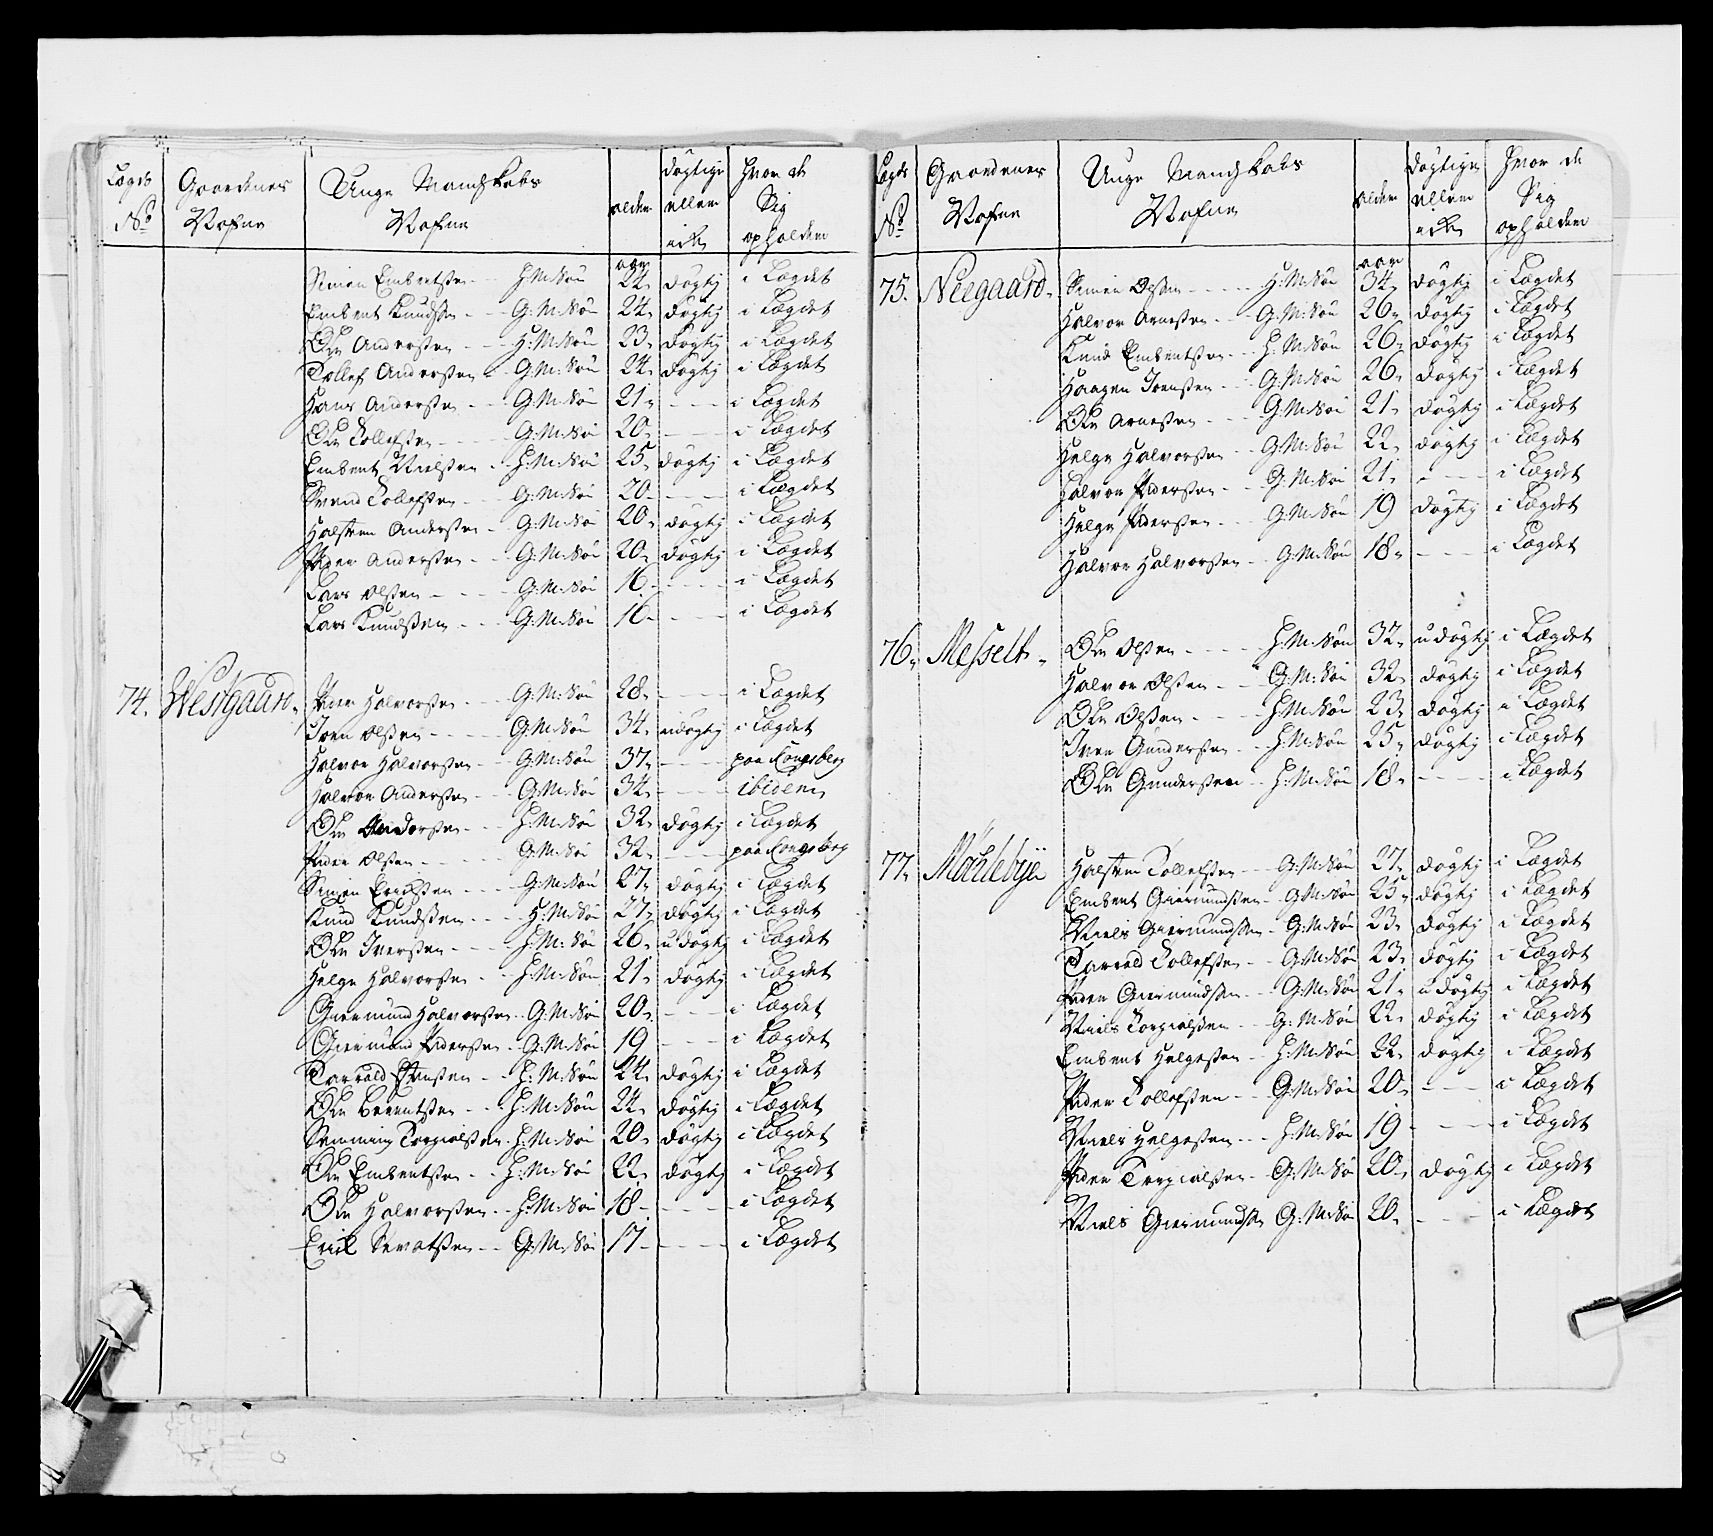 Lægds No Gaardenes Nafne Unge Mandskabs Nafne alder døgtige ellem icke hvor de Sig opholdem
aar
Simen Embretßen H:M:Søn 22 døgtig i Lægdet
Embret Knudßen G:M:Søn 24 døgtig i Lægdet
Ole Anderßen H:M:Søn 23 døgtig i Lægdet
Tollef Anderßen G:M:Søn 24 døgtig i Lægdet
Hans Anderßen G:M:Søn 21 - - - i Lægdet
Ole Tollefßen G:M:Søn 20 - - - i Lægdet
Embret Nielßen H:M:Søn 25 døgtig i Lægdet
Svend Tollefßen G:M:Søn 20 - - - i Lægdet
Halsten Anderßen G:M:Søn 20 døgtig i Lægdet
Peder Anderßen G:M:Søn 20 døgtig i Lægdet
Lars Olßen G:M:Søn 16 - - - i Lægdet
Lars Knudßen G:M:Søn 16 - - - i Lægdet
74. Westgaard Halvorßen G:M:Søn 28 - - - i Lægdet
Iven Olßen G:M:Søn 34 udøgtig i Lægdet
Halvor Halvorßen G:M:Søn 37 - - - paa Kongsberg
Halvor Anderßen G:M:Søn 34 - - - ibidem
Ole Anderßen H:M:Søn 32 døgtig i Lægdet
Peder Olßen G:M:Søn 32 - - - paa Kongsberg
Simen Erichßen G:M:Søn 27 døgtig i Lægdet
Knud Knudßen H:M:Søn 27 døgtig i Lægdet
Ole Iverßen H:M:Søn 26 udøgtig i Lægdet
Helge Halvorßen H:M:Søn 21 døgtig i Lægdet
Giermund Halvorßen G:M:Søn 20 - - - i Lægdet
Giermund Pederßen G:M:Søn 19 - - - i Lægdet
Tarald H:M:Søn 24 døgtig i Lægdet
Ole Berentßen H:M:Søn 24 døgtig i Lægdet
Semming Torgialßen H:M:Søn 20 døgtig i Lægdet
Ole Embretßen H:M:Søn 22 døgtig i Lægdet
Ole Halvorßen H:M:Søn 18 - - - i Lægdet
Erick G:M:Søn 17 - - - i Lægdet
Lægds No Gaardenes Nafne Unge Mandskabs Nafne alder døgtige ellem icke hvor de Sig opholdem
aar
75. Neegaard Simen Olßen H:M:Søn 34 døgtig i Lægdet
Halvor Arneßen G:M:Søn 26 døgtig i Lægdet
Knud Embretßen H:M:Søn 26 døgtig i Lægdet
Haagen Ivenßen G:M:Søn 26 døgtig i Lægdet
Ole Arneßen G:M:Søn 21 døgtig i Lægdet
Helge Halvorßen G:M:Søn 22 døgtig i Lægdet
Halvor Pederßen G:M:Søn 21 - - - i Lægdet
Helge Pederßen G:M:Søn 19 døgtig i Lægdet
Halvor Halvorßen G:M:Søn 18 - - - i Lægdet
76. Messelt Ole Olßen H:M:Søn 32 udøgtig i Lægdet
Halvor Olßen G:M:Søn 32 døgtig i Lægdet
Ole Olßen H:M:Søn 23 døgtig i Lægdet
Iver Gunderßen H:M:Søn 25 døgtig i Lægdet
Ole Gunderßen H:M:Søn 18 - - - i Lægdet
77. Mørlebye Halsten Tollefßen G:M:Søn 27 døgtig i Lægdet
Embret Giermundßen G:M:Søn 25 døgtig i Lægdet
Niels Giermundßen G:M:Søn 23 døgtig i Lægdet
Tarald Tollefßen G:M:Søn 23 døgtig i Lægdet
Peder Giermundßen G:M:Søn 21 udøgtig i Lægdet
Niels Torgialßen G:M:Søn 22 døgtig i Lægdet
Embret Helgeßen H:M:Søn 22 døgtig i Lægdet
Peder Tollefßen G:M:Søn 20 - - - i Lægdet
Niels Helgeßen H:M:Søn 19 - - - i Lægdet
Peder Torgialßen G:M:Søn 20 døgtig i Lægdet
Niels Giermundß G:M:Søn 20 - - - i Lægdet